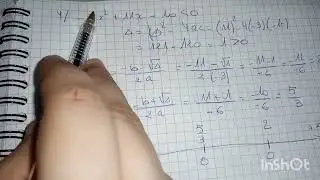 4/ x² + 11x - 10 < 0
Δ = b² - 4ac = (11)² - 4(-3)(-10)
= 121 - 120 = 1 > 0
-b-√Δ / 2a = -11-√1 / 2(-3) = -11-1 / -6 = -12 / -6 = 2
-b+√Δ / 2a = -11+1 / -6 = -10 / -6 = 5 / 3
5/3 2
0 0
InShOt